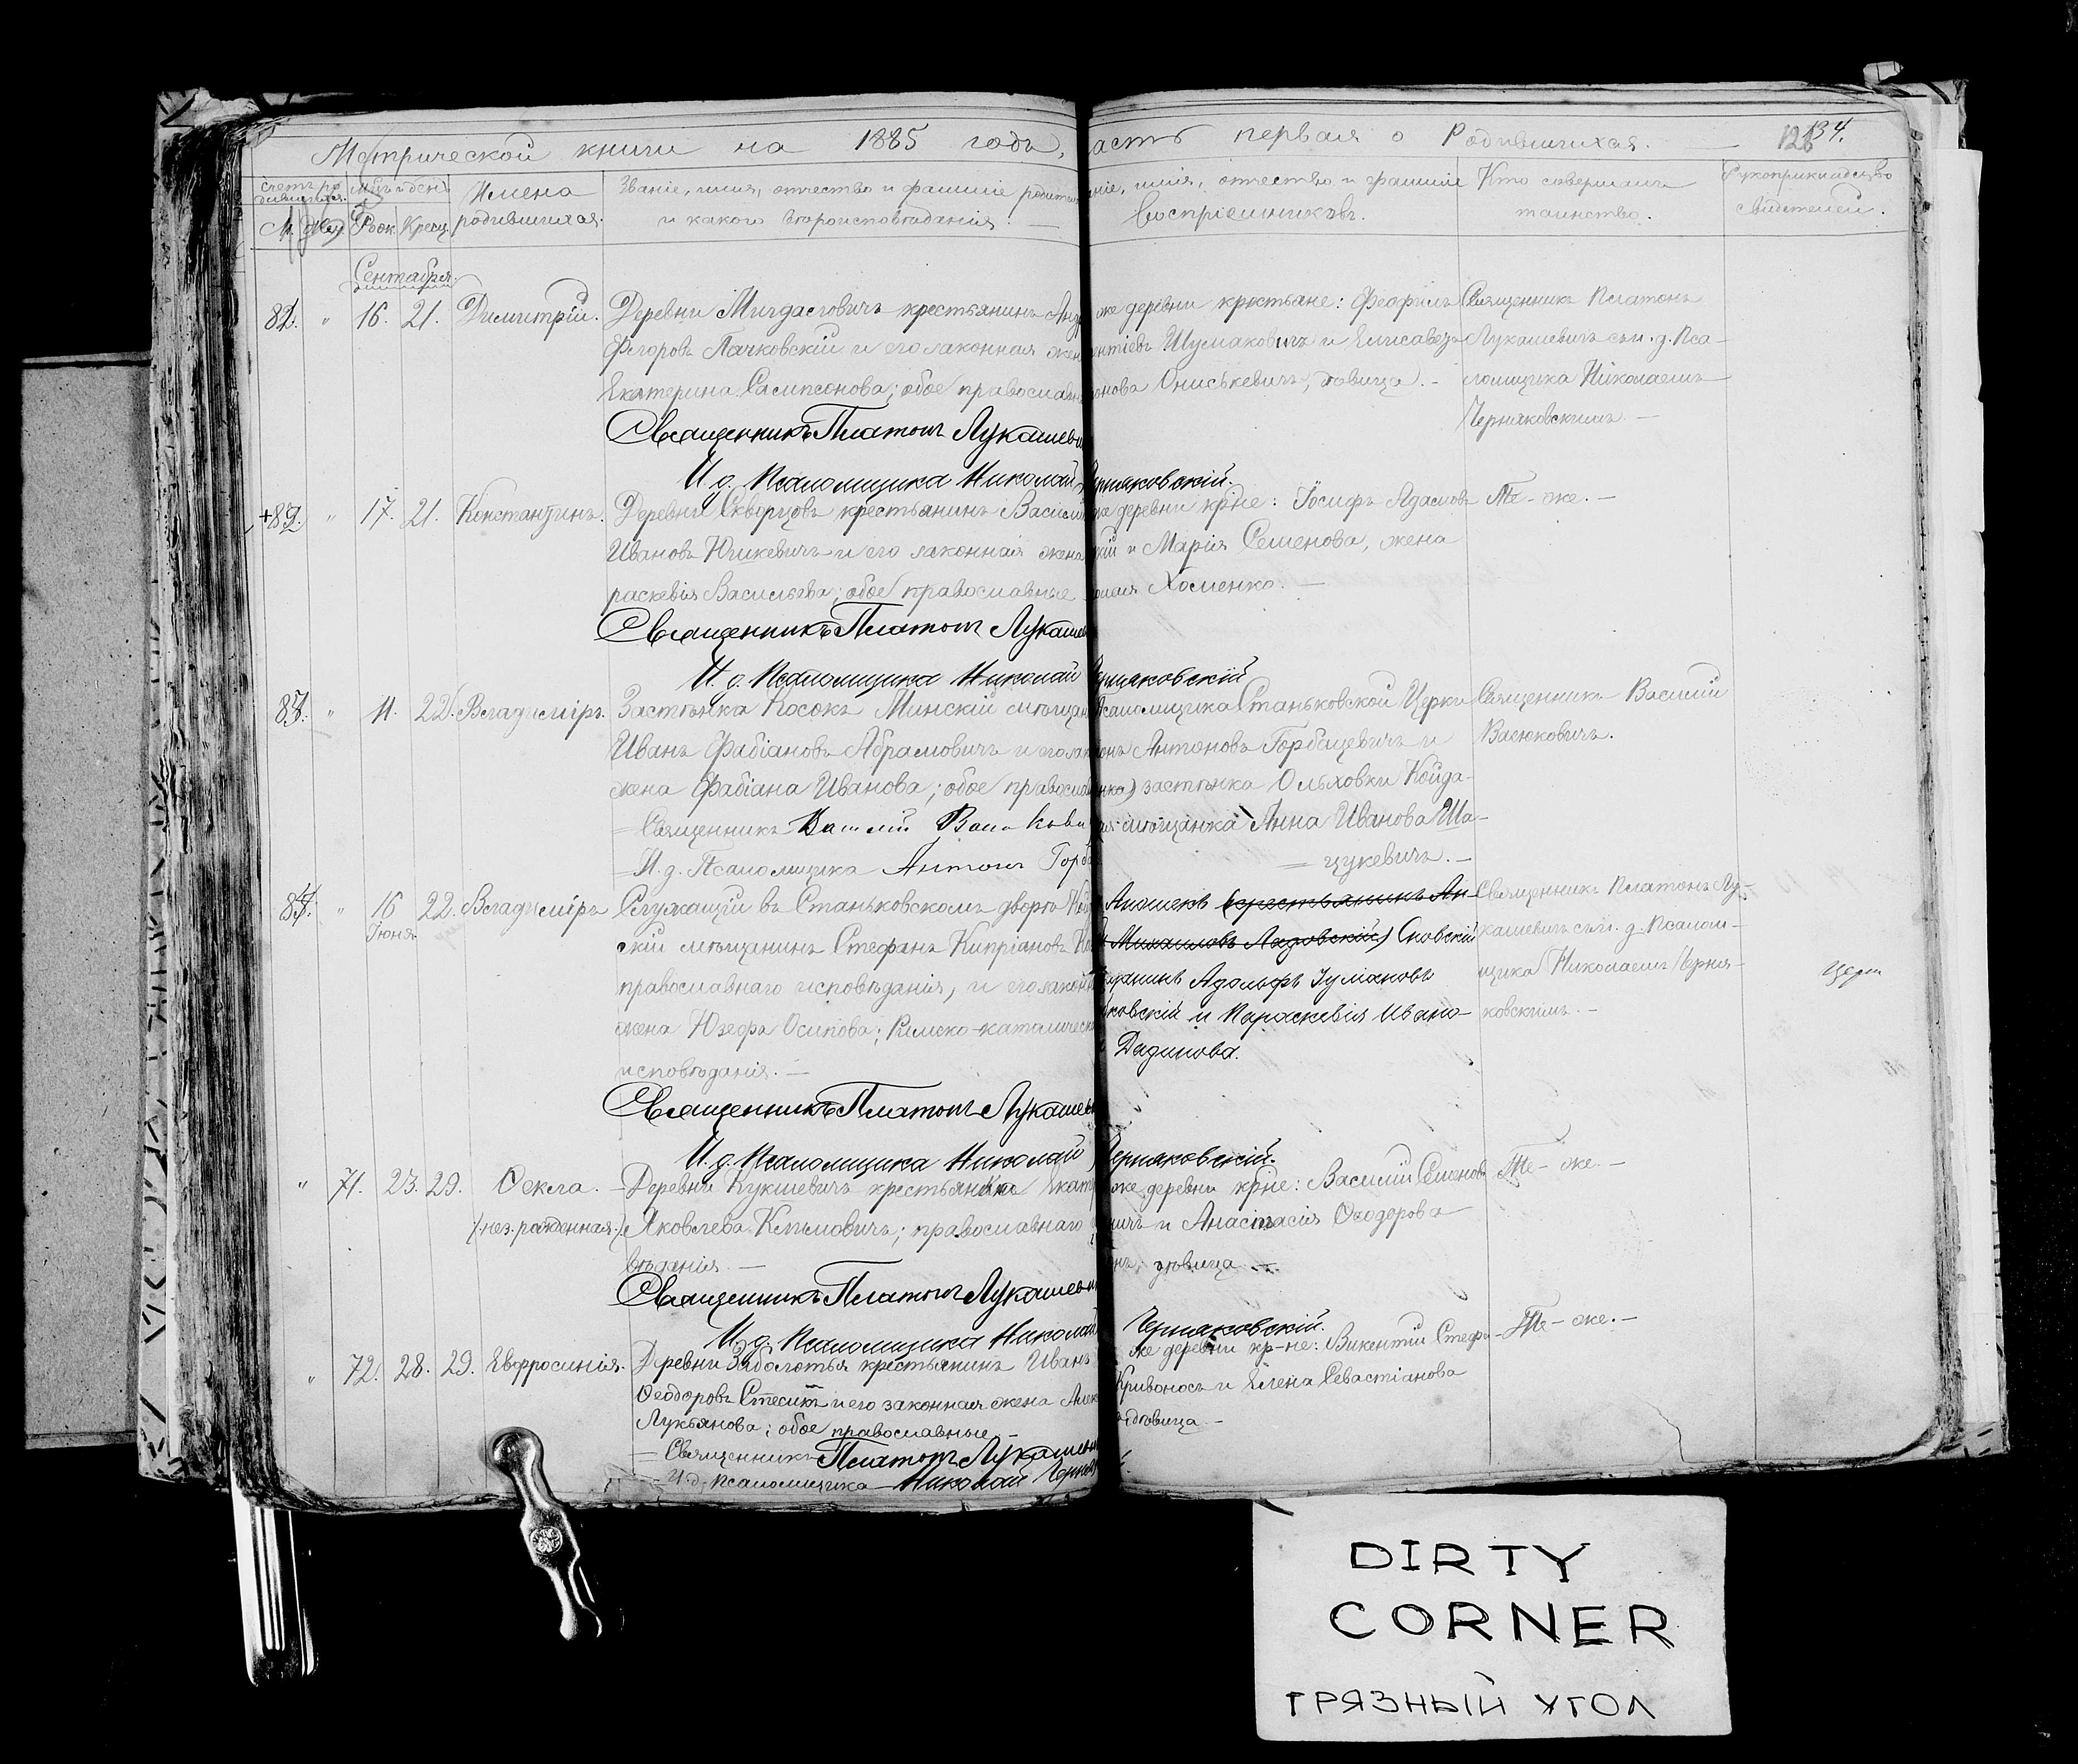 Метрической книги на 1885 годъ,
асть первая о Родившихся.
134.
Имена
родившихся.
Званіе, имя, отчество и фамиліе родител
и какого вѣроисповѣданія
ніе, имя, отчество и фамиліе
Воспріемниковъ.
Кто совершалъ
таинство.
Рукоприкладство
свидѣтелей.
М. Жен. Рож. Крещ.
Сентября.
82. " 16. 21. Димитрій.
Деревни крестьянинъ Анд
Ѳедоровъ Пачковскій и его законная жен
Екатерина Сампсонова; обое православн
Священникъ Платонъ Лукашеви
И. д. Псаломщика Николай
же деревни крестьяне: Феофилъ
ентіевъ Шумаковичъ и Елисавета
онова Ониськевичъ, дѣвица.
Чернаковскій.
Священникъ Платонъ
Лукашевичъ съ и. д. Пса-
ломщика Николаемъ
Черняковскимъ. —
83. " 17. 21. Константинъ.
Деревни Скворцовъ крестьянинъ Васил
Ивановъ Юшкевичъ и его законная жена
раскевія Васильева; обое православные
Священникъ Платонъ Лукашев
И. д. Псаломщика Николай
же деревни кр-не: Іосифъ Адамовъ
кій и Марія Семенова, жена
Хоменко. —
Черняковскій
Тѣ-же. —
" 11. 22. Владиміръ.
Застѣнка Посокъ Минскій мѣщан
Иванъ Фабіановъ Абрамовичъ и его зак
жена Фабіана Иванова; обое православ
= Священникъ Василій Васюкови
= И. д. Псаломщика Антонъ Горб
Псаломщика Станьковской Церкви
Антоновъ Горбацевичъ и
застѣнка Ольховки Койда-
мѣщанка Анна Иванова Ша-
= цукевичъ. —
Священникъ Василій
Васюковичъ.
" 16 22. Владиміръ
Іюня
Служащій въ Станьковскомъ дворѣ Кой
скій мѣщанинъ Стефанъ Кипріановъ
православнаго исповѣданія, и его законн
жена Юзефа Осипова; Римско-католическ
исповѣданія. —
Священникъ Платонъ Лукашев
И. д. Псаломщика Николай
(крестьянинъ Ан-
Михаиловъ Лазовскій)
Адольфъ
ковскій и Параскевія Ивано-
Дадинова.
Черняковскій.
Священникъ Платонъ Лу-
кашевичъ съ и. д. Псалом-
щика Николаемъ Черня-
ковскимъ. —
" 71. 23. 29. Ѳекла. —
(нез. рожденная.)
Деревни Кукшевичъ крестьянка Екат
Яковлева Климовичъ; православнаго
вѣданія. —
Священникъ Платонъ Лукашев
И. д. Псаломщика Николай
же деревни кр-не: Василій Семеновъ
ичъ и Анастасія Ѳеодорова
дѣвица
Черняковскій.
Тѣ-же. —
" 72. 28. 29. Евфросинія.
Деревни Заболотья крестьянинъ Иванъ
Ѳеодоровъ и его законная жена Алек
Лукьянова; обое православные. —
= Священникъ Платонъ Лукашеви
= И. д. псаломщика — Николай Черняк
же деревни кр-не: Викентій Стефа-
Кривоносъ и Елена Севастіанова
дѣвица. —
Тѣ-же. —
DIRTY
CORNER
ГРЯЗНЫЙ УГОЛ